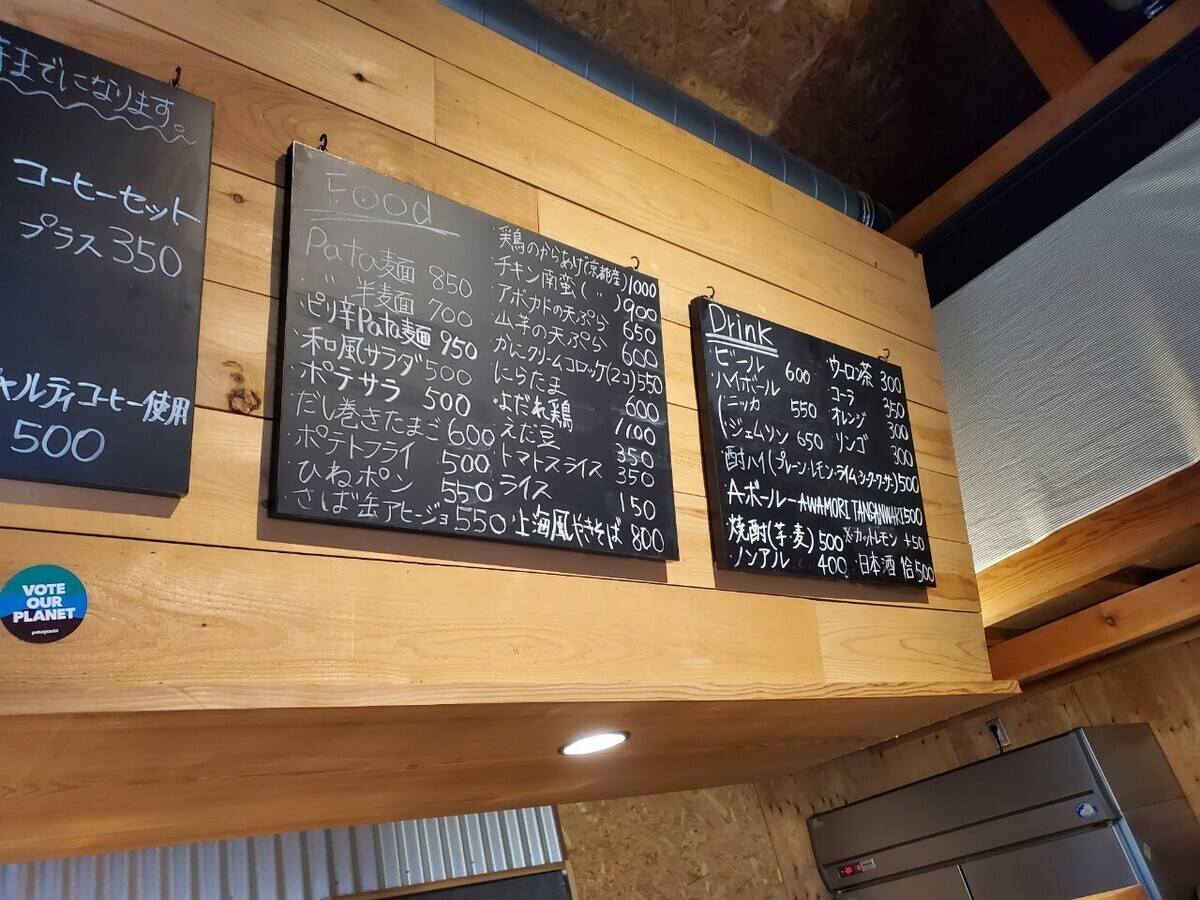 までになります。
コーヒーセット
プラス350
ャルティコーヒー使用
500
VOTE
OUR
PLANET
patagonia
Food
Pata麺 850
〃 半麺 700
・ピリ辛Pata麺 950
・和風サラダ 500
・ポテサラ 500
・だし巻きたまご 600
・ポテトフライ 500
・ひねポン 550
・さば缶アヒージョ 550
・鶏のからあげ(京都産) 1000
・チキン南蛮( 〃 ) 900
・アボカドの天ぷら 650
・山芋の天ぷら 600
・かにクリームコロッケ(2コ) 550
・にらたま 600
・よだれ鶏 1100
・えだ豆 350
・トマトスライス 350
・ライス 150
・上海風やきそば 800
Drink
・ビール 600
・ハイボール
(ニッカ 550
(ジェムソン 650
・酎ハイ(プレーン・レモン・ライム・シークワーサー) 500
・A・ボールーAWAMORI TANSANWARI 500
・焼酎(芋・麦) 500 ※カットレモン +50
・ノンアル 400
・ウーロン茶 300
・コーラ 350
・オレンジ 300
・リンゴ 300
・日本酒 1合 500